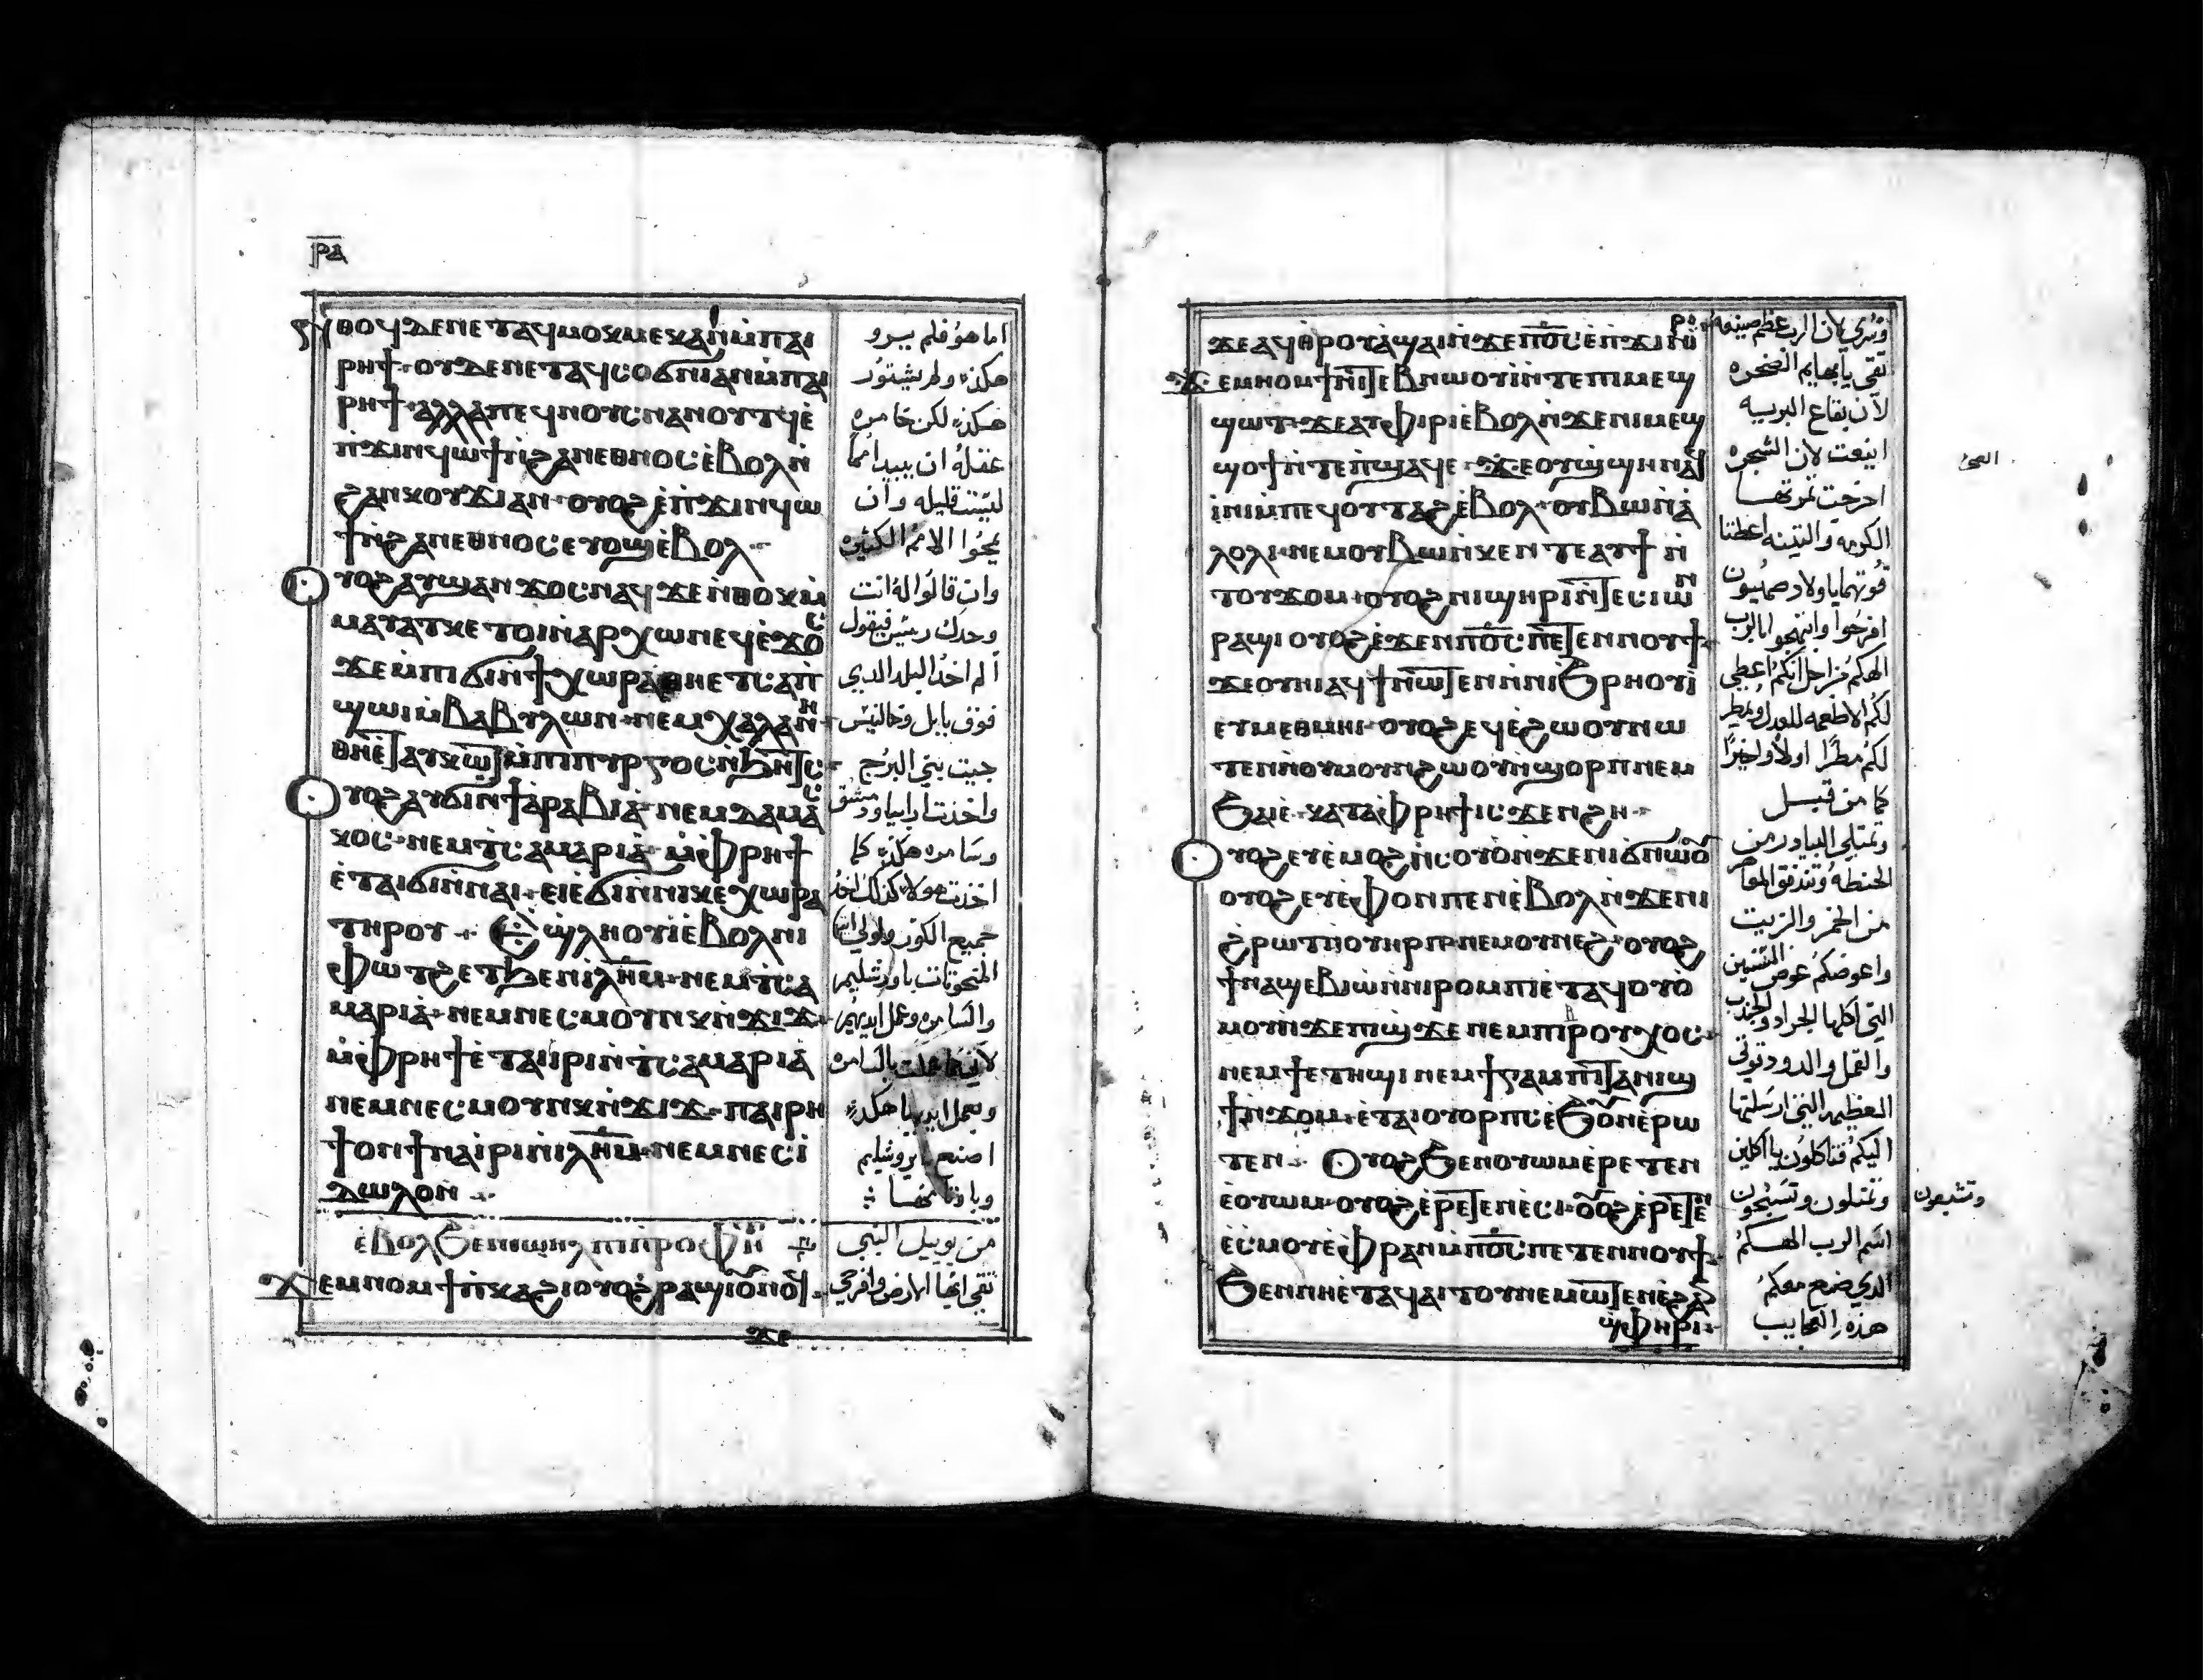 ⲣⲁ
ⲛⲑⲟϥ ⲇⲉ ⲛⲉⲧⲁϥⲙⲟⲕⲙⲉⲕ ⲁⲛ ⲙ̀ⲡⲁⲓ
ⲣⲏϯ· ⲟⲩⲇⲉ ⲛⲉⲧⲁϥⲥⲟϭⲛⲓ ⲁⲛ ⲙ̀ⲡⲁⲓ
ⲣⲏϯ· ⲁⲗⲗⲁ ⲡⲉϥⲛⲟⲩⲥ ⲛⲁⲛⲟⲩⲧϥ ⲉ̀
ⲡ̀ϫⲓⲛϥⲱϯ ⲛ̀ϩⲁⲛⲉⲑⲛⲟⲥ ⲉ̀ⲃⲟⲗ ⲛ̀
ϩⲁⲛⲕⲟⲩϫⲓ ⲁⲛ· ⲟⲩⲟϩ ⲉ̀ⲡ̀ϫⲓⲛϥⲱ
ϯ ⲛ̀ϩⲁⲛⲉⲑⲛⲟⲥ ⲉⲩⲟϣ ⲉ̀ⲃⲟⲗ
ⲟⲩⲟϩ ⲁⲩϣⲁⲛϫⲟⲥ ⲛⲁϥ ϫⲉ ⲛ̀ⲑⲟⲕ ⲙ̀
ⲙⲁⲩⲁⲧⲕ ⲉⲧⲟⲓ ⲛ̀ⲁⲣⲭⲱⲛ ⲉϥⲉ̀ϫⲟⲥ
ϫⲉ ⲙ̀ⲡⲓϭⲓ ⲛ̀ϯⲭⲱⲣⲁ ⲑⲏⲉⲧⲥⲁⲡ
ϣⲱⲓ ⲙ̀ⲃⲁⲃⲩⲗⲱⲛ· ⲛⲉⲙ ⲭⲁⲗⲁⲛⲏ
ⲑⲏⲉⲧⲁⲩⲕⲱⲧ ⲙ̀ⲡⲓⲡⲩⲣⲅⲟⲥ ⲛ̀ϧⲏⲧⲥ
ⲟⲩⲟϩ ⲁⲩϭⲓ ⲛ̀ϯⲁⲣⲁⲃⲓⲁ̀ ⲛⲉⲙ ⲇⲁⲙⲁⲥ
ⲕⲟⲥ· ⲛⲉⲙ ϯⲥⲁⲙⲁⲣⲓⲁ̀ ⲙ̀ⲫⲣⲏϯ
ⲉ̀ⲧⲁⲓϭⲓ ⲛ̀ⲛⲁⲓ· ⲉⲓⲉ̀ϭⲓ ⲛ̀ⲛⲓⲕⲉⲭⲱⲣⲁ
ⲧⲏⲣⲟⲩ· ⲱϣ ⲗⲏⲟⲩⲓ ⲉ̀ⲃⲟⲗ ⲛⲓ
ⲫⲱⲧϩ ⲉⲧϧⲉⲛ ⲓⲗⲏⲙ· ⲛⲉⲙ ϯⲥⲁ
ⲙⲁⲣⲓⲁ̀· ⲛⲉⲙ ⲛⲉⲥⲙⲟⲩⲛⲕ ⲛ̀ϫⲓϫ
ⲙ̀ⲫⲣⲏϯ ⲉ̀ⲧⲁⲓⲓⲣⲓ ⲛ̀ϯⲥⲁⲙⲁⲣⲓⲁ̀
ⲛⲉⲙ ⲛⲉⲥⲙⲟⲩⲛⲕ ⲛ̀ϫⲓϫ· ⲡⲁⲓⲣⲏ
ϯ ⲟⲛ ϯⲛⲁⲓⲣⲓ ⲛ̀ⲓⲗⲏⲙ· ⲛⲉⲙ ⲛⲉⲥⲓ
ⲇⲱⲗⲟⲛ
ⲉ̀ⲃⲟⲗϧⲉⲛ ⲓⲱⲏⲗ ⲡⲓⲡⲣⲟⲫⲏ
ϫⲉⲙⲛⲟⲙϯ ⲡ̀ⲕⲁϩⲓ ⲟⲩⲟϩ ⲣⲁϣⲓ ⲟⲩⲟϩ ⲟⲩⲛⲟϥ
ϫⲉ
اما هو فلم يبرو
هكذه ولم يشتور
هكذه لكن خامره
عقله ان يبيد امماً
ليست قليله وان
يمحوا الامم الكثيره
وان قالوا له انت
وحدك رييس فيقول
الم اخذ البلد الدي
فوق بابل وخالنيس
حيت بني البرج
واخذت ارابيا ودمشق
وسامره هكذه كما
اخذت هولا كذلك اخذ
جميع الكور
المنحوتات باورشليم
والسامره وعمل ايديهم
بالسامره
وبعمل ايديها هكذه
اصنع بايروشليم
من يوييل النبي
تقي ايها الارض وافرحي
ϫⲉ ⲁϥⲑⲣⲟⲩⲁ̀ϣⲁⲓ ⲛ̀ϫⲉ ⲡϭⲟⲓⲥ ⲉ̀ⲡ̀ϫⲓⲛⲓ̀
ϫⲉⲙⲛⲟⲙϯ ⲛⲓⲧⲉⲃⲛⲱⲟⲩⲓ ⲛ̀ⲧⲉ ⲡⲓⲙⲉϣ
ϣⲱⲧ· ϫⲉ ⲁⲩⲫⲓⲣⲓ ⲉ̀ⲃⲟⲗ ⲛ̀ϫⲉ ⲛⲓⲙⲉϣ
ϣⲟϯ ⲛ̀ⲧⲉ ⲡ̀ϣⲁϥⲉ· ϫⲉ ⲟⲩϣ̀ϣⲏⲛ ⲁϥ
ⲓ̀ⲛⲓ ⲙ̀ⲡⲉϥⲟⲩⲧⲁϩ ⲉ̀ⲃⲟⲗ· ⲟⲩⲃⲱ ⲛ̀ⲁ̀
ⲗⲟⲗⲓ· ⲛⲉⲙ ⲟⲩⲃⲱ ⲛ̀ⲕⲉⲛⲧⲉ ⲁⲩϯ ⲛ̀
ⲧⲟⲩϫⲟⲙ· ⲟⲩⲟϩ ⲛⲓϣⲏⲣⲓ ⲛ̀ⲧⲉ ⲥⲓⲱⲛ
ⲣⲁϣⲓ ⲟⲩⲟϩ ⲉ̀ϫⲉⲛ ⲡϭⲟⲓⲥ ⲡⲉⲧⲉⲛⲛⲟⲩϯ
ϫⲉ ⲟⲩⲏⲓ ⲁϥϯ ⲛⲱⲧⲉⲛ ⲛ̀ⲛⲓϧⲣⲏⲟⲩⲓ̀
ⲉⲩⲙⲉⲑⲙⲏⲓ· ⲟⲩⲟϩ ⲉϥⲉ̀ϩⲱⲟⲩ ⲛⲱ
ⲧⲉⲛ ⲛ̀ⲟⲩⲙⲟⲩⲛϩⲱⲟⲩ ⲛ̀ϣⲟⲣⲡ ⲛⲉⲙ
ϧⲁⲉ̀· ⲕⲁⲧⲁ ⲫ̀ⲣⲏϯ ⲓⲥϫⲉⲛ ϩⲏ
ⲟⲩⲟϩ ⲉⲩⲉ̀ⲙⲟϩ ⲛ̀ⲥⲟⲩⲟ ⲛ̀ϫⲉ ⲛⲓϭⲛⲱⲟⲩ
ⲟⲩⲟϩ ⲉⲩⲉ̀ⲫⲟⲛⲡⲉⲛ ⲉ̀ⲃⲟⲗ ⲛ̀ϫⲉ ⲛⲓ
ϩⲣⲱⲧ ⲛ̀ⲟⲩⲏⲣⲡ ⲛⲉⲙ ⲟⲩⲛⲉϩ· ⲟⲩⲟϩ
ϯⲛⲁϣⲉⲃⲓⲱ̀ ⲛ̀ⲛⲓⲣⲟⲙⲡⲓ ⲉ̀ⲧⲁϥⲟⲩⲟ̀
ⲙⲟⲩ ⲛ̀ϫⲉ ⲡⲓϣϫⲉ ⲛⲉⲙ ⲡⲓⲃⲣⲟⲩⲭⲟⲥ
ⲛⲉⲙ ϯⲉⲧⲏϣⲓ ⲛⲉⲙ ϯⲕⲁⲙⲡⲏ ⲧⲁⲛⲓϣ
ϯ ⲛ̀ϫⲟⲙ· ⲉ̀ⲧⲁⲓⲟⲩⲟⲣⲡⲥ ⲉ̀ϧⲟⲩⲛ ⲉ̀ⲣⲱ
ⲧⲉⲛ ⲟⲩⲟϩ ϧⲉⲛ ⲟⲩⲱⲙ ⲉ̀ⲣⲉⲧⲉⲛ
ⲉ̀ⲟⲩⲱⲙ· ⲟⲩⲟϩ ⲉ̀ⲣⲉⲧⲉⲛⲉ̀ⲥⲓ· ⲟⲩⲟϩ ⲉ̀ⲣⲉⲧⲉⲛ
ⲉ̀ⲥⲙⲟⲩ ⲉ̀ⲫ̀ⲣⲁⲛ ⲙ̀ⲡϭⲟⲓⲥ ⲡⲉⲧⲉⲛⲛⲟⲩϯ
ϧⲉⲛ ⲛⲏ ⲉ̀ⲧⲁϥⲁⲓⲧⲟⲩ ⲛⲉⲙⲱⲧⲉⲛ ⲉ̀ϩⲁⲛ
ϣ̀ⲫⲏⲣⲓ
لان الرب عظم صنيعه
تقي يا بهايم الصخره
لان بقاع البريه
اينعت لان الشجره
اخرجت ثمرتها
الكرمه والتينه اعطتا
قوتهما يا اولاد صهيون
افرحوا وابتهجوا بالرب
الهكم من اجل انكم اعطي
لكم الاطعمه للعدل ويمطر
لكم مطرًا اولاً واخيرًا
كما من قبل
وتمتلي البيادر من
الحنطه وتندفق المعاصر
من الخمر والزيت
واعوضكم عوض السنين
التي اكلها الجراد والجندب
والقمل والدود قوتي
العظيمه التي ارسلتها
اليكم فتاكلون يا اكلين
وتمتلون وتسبحون
وتشبعون
اسم الرب الهكم
الدي صنع معكم
هذه العجايب